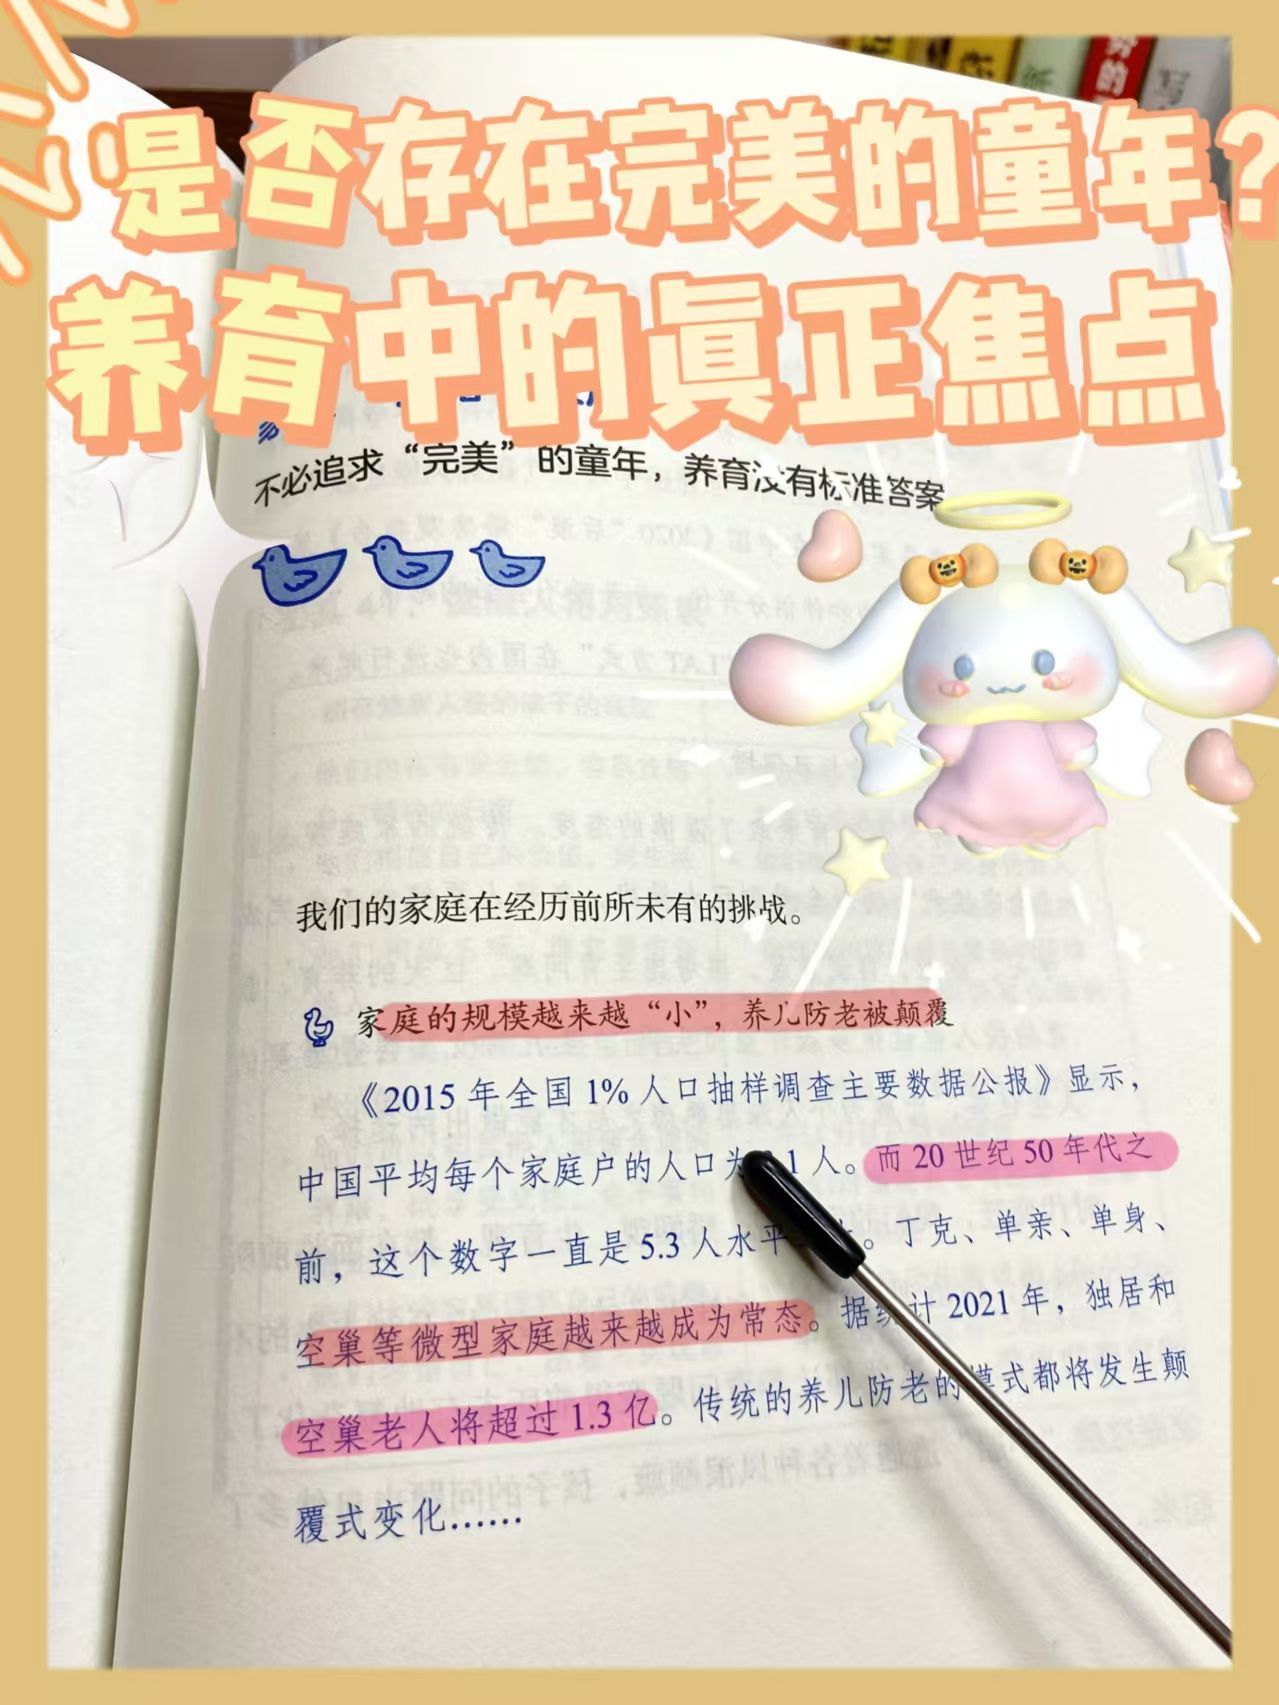 是否存在完美的童年？
养育中的真正焦点
不必追求“完美”的童年，养育没有标准答案
我们的家庭在经历前所未有的挑战。
家庭的规模越来越“小”，养儿防老被颠覆
《2015 年全国 1% 人口抽样调查主要数据公报》显示，
中国平均每个家庭户的人口为 1 人。而 20 世纪 50 年代之
前，这个数字一直是 5.3 人水平 。丁克、单亲、单身、
空巢等微型家庭越来越成为常态。据统计 2021 年，独居和
空巢老人将超过 1.3 亿。传统的养儿防老的模式都将发生颠
覆式变化……